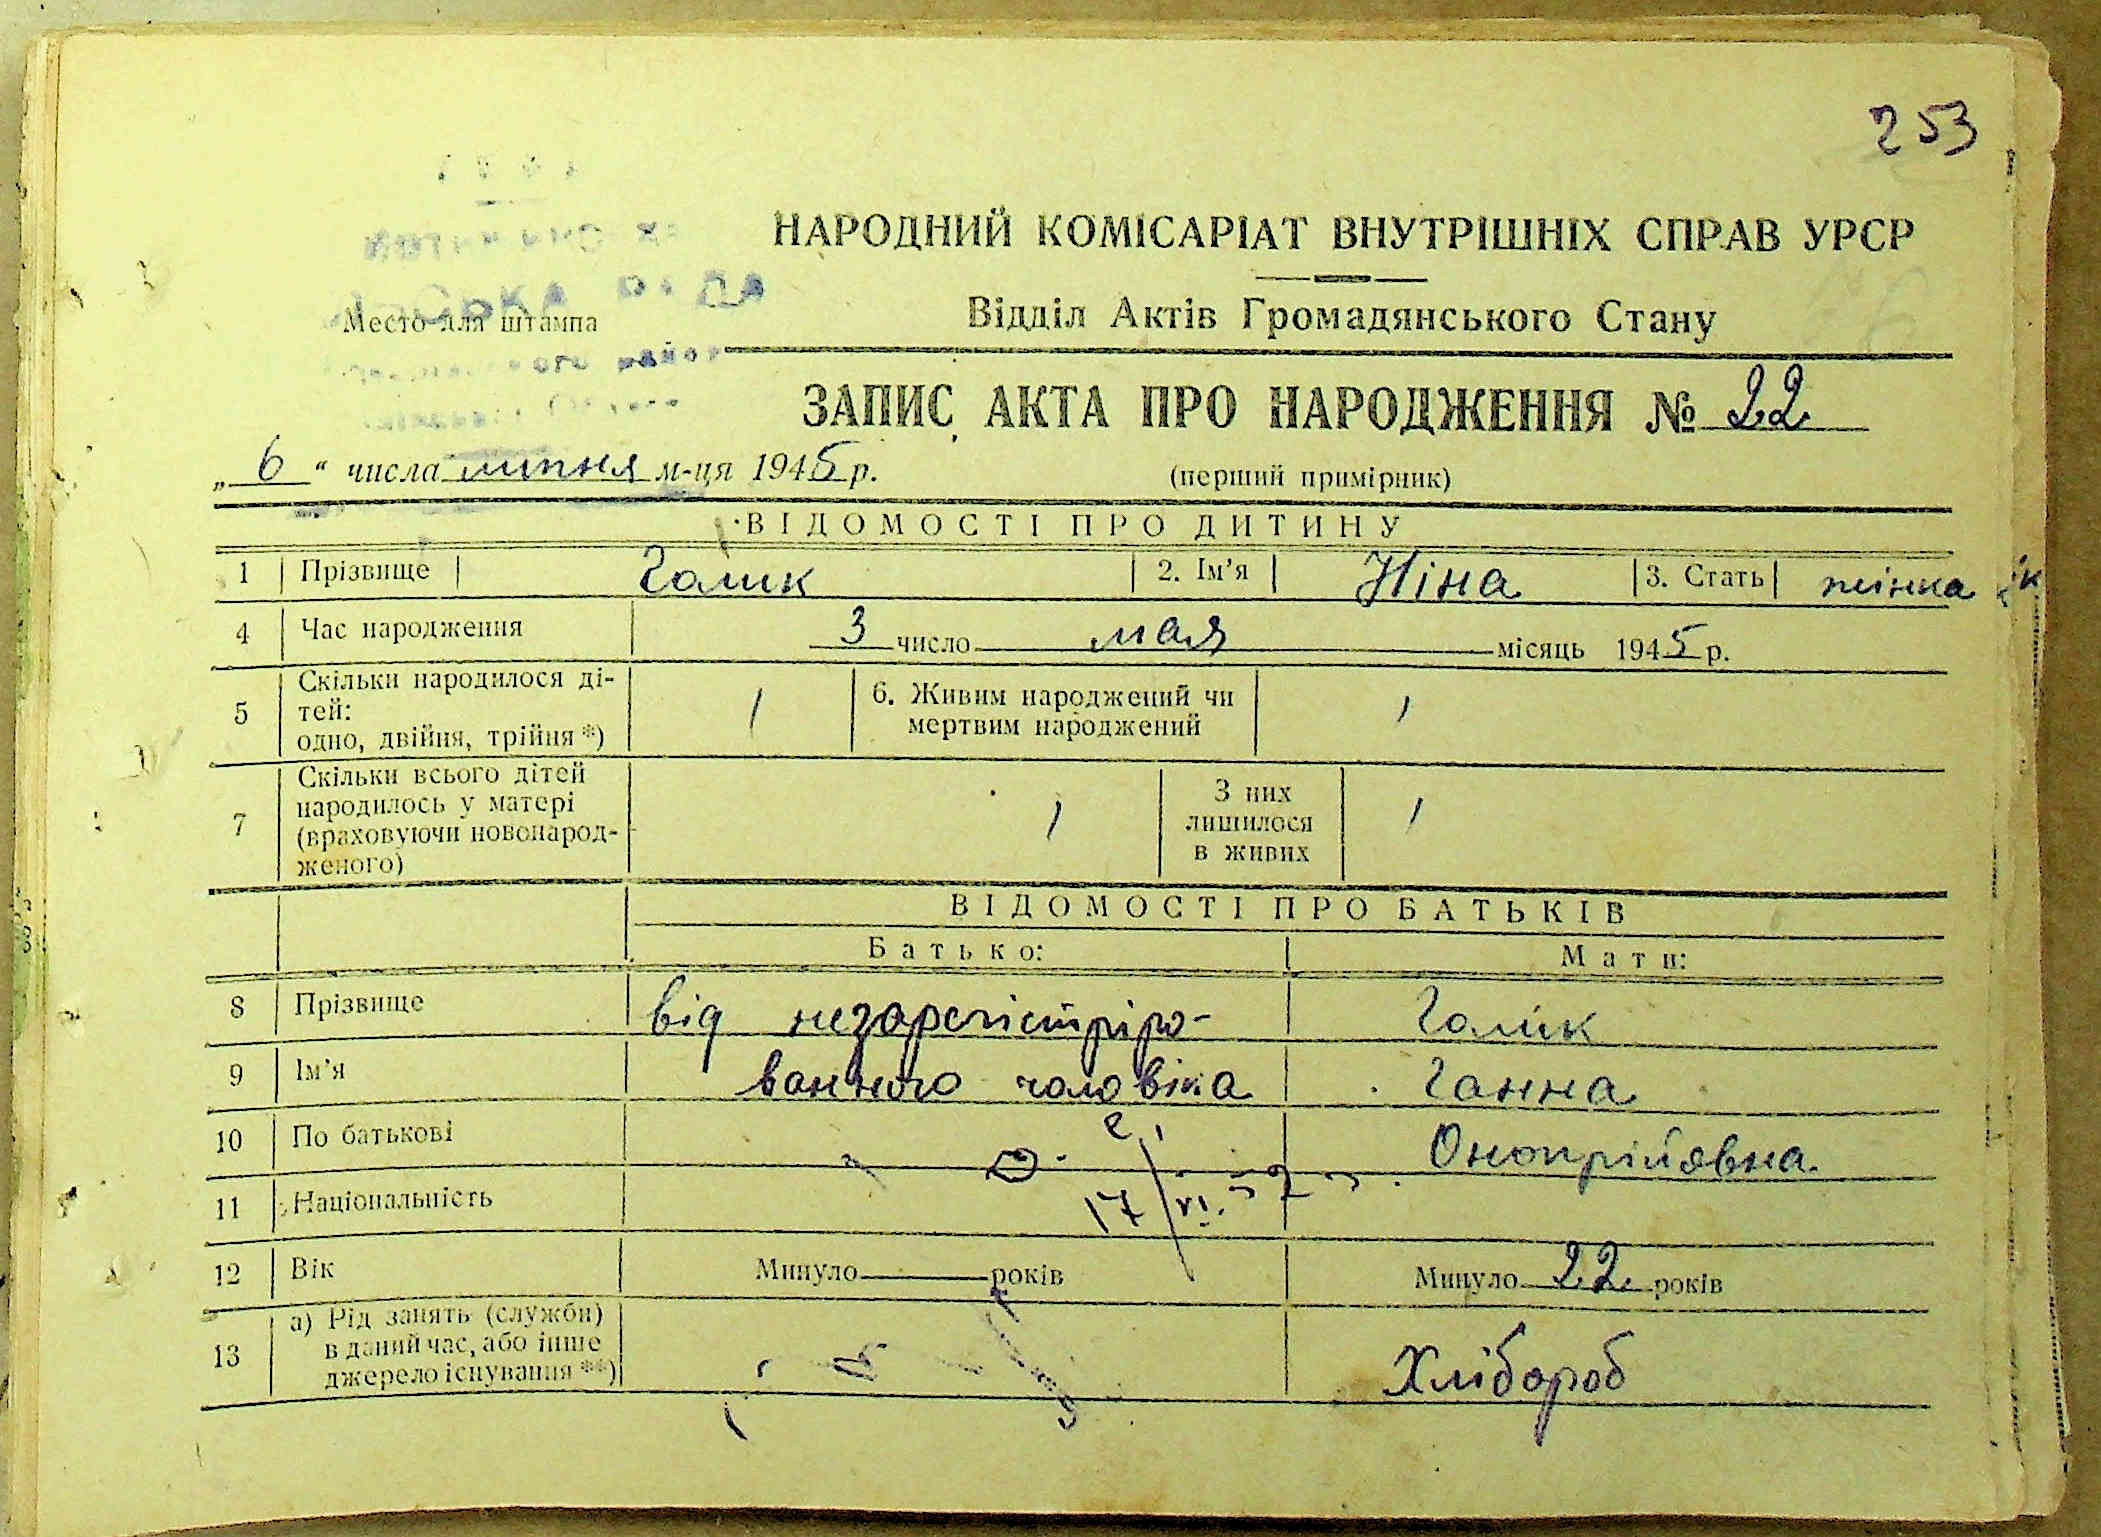 253
НАРОДНИЙ КОМІСАРІАТ ВНУТРІШНІХ СПРАВ УРСР
Место для штампа
Відділ Актів Громадянського Стану
ЗАПИС АКТА ПРО НАРОДЖЕННЯ № 22
„ 6 “ числа липня м-ця 1945 р. (перший примірник)
ВІДОМОСТІ ПРО ДИТИНУ
1 Прізвище Галик 2. Ім'я Ніна 3. Стать жінка
4 Час народження 3 число мая місяць 1945 р.
5 Скільки народилося ді-
тей:
одно, двійня, трійня *) 1
6. Живим народжений чи
мертвим народжений 1
7 Скільки всього дітей
народилось у матері
(враховуючи новонарод-
женого) 1
З них
лишилося
в живих 1
ВІДОМОСТІ ПРО БАТЬКІВ
Батько: Мати:
8 Прізвище від незарегістріро- Галик
9 Ім'я ванного чоловіка Ганна
10 По батькові Онопрійовна
11 Національність 17/VI
12 Вік Минуло років Минуло 22 років
13 а) Рід занять (служби)
в даний час, або інше
джерело існування **) Хлібороб